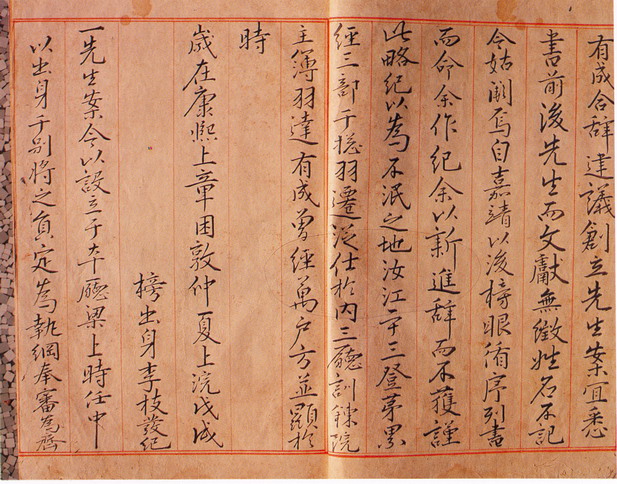 有成合辞建議創立先生案宜悉
書前後先生而文獻無徵姓名不記
今姑闕焉自嘉靖以後榜眼循序列書
而命余作紀余以新進辞而不獲謹
此略紀以為不泯之地汝江千三登苐累
經三部千摠羽遷泛仕於内三廳訓鍊院
主簿羽達有成曾經萬户方並顯於
時
歳在康熙上章困敦仲夏上浣戊戌
榜出身李枝發紀
一先生案今以設立于本廳梁上時任中
以出身千别將之負定為執綱奉審為齊